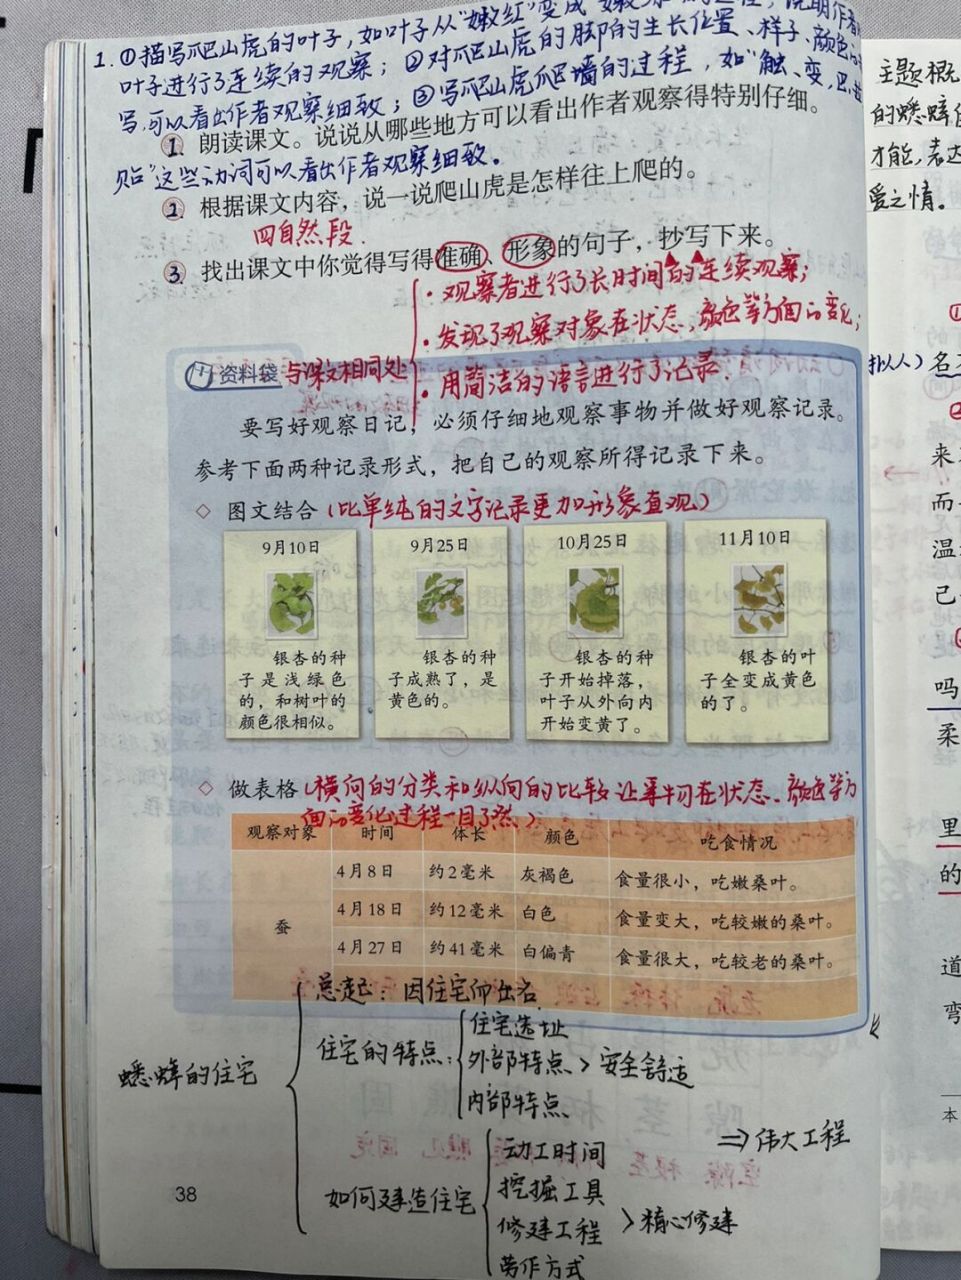 1.①描写爬山虎的叶子,如叶子从"嫩红"变成"嫩绿"的过程,说明作者
叶子进行了连续的观察;②对爬山虎的脚的生长位置、样子、颜色
写,可以看出作者观察细致;③写爬山虎爬墙的过程,如"触、变、巴、拉
1. 朗读课文。说说从哪些地方可以看出作者观察得特别仔细。
贴"这些动词可以看出作者观察细致。
2. 根据课文内容,说一说爬山虎是怎样往上爬的。
四自然段.
3. 找出课文中你觉得写得准确、形象的句子,抄写下来。
·观察者进行了长时间的连续观察;
·发现了观察对象在状态、颜色等方面的变化;
资料袋 与课文相同处:
·用简洁的语言进行了记录.
要写好观察日记,必须仔细地观察事物并做好观察记录。
参考下面两种记录形式,把自己的观察所得记录下来。
◇ 图文结合(比单纯的文字记录更加形象直观)
9月10日
银杏的种
子是浅绿色
的,和树叶的
颜色很相似。
9月25日
银杏的种
子成熟了,是
黄色的。
10月25日
银杏的种
子开始掉落,
叶子从外向内
开始变黄了。
11月10日
银杏的叶
子全变成黄色
的了。
◇ 做表格(横向的分类和纵向的比较让事物在状态、颜色等方
面的变化过程一目了然)
观察对象 时间 体长 颜色 吃食情况
蚕
4月8日 约2毫米 灰褐色 食量很小,吃嫩桑叶。
4月18日 约12毫米 白色 食量变大,吃较嫩的桑叶。
4月27日 约41毫米 白偏青 食量很大,吃较老的桑叶。
蟋蟀的住宅
总起:因住宅而出名
住宅的特点:
住宅选址
外部特点 > 安全舒适
内部特点
如何建造住宅
动工时间
挖掘工具
修建工程 > 精心修建
劳作方式
⇒ 伟大工程
38
主题概
的蟋蟀
才能,表达
爱之情。
拟人)名
来
而
温
己
吗
柔
里
的
道
弯
本